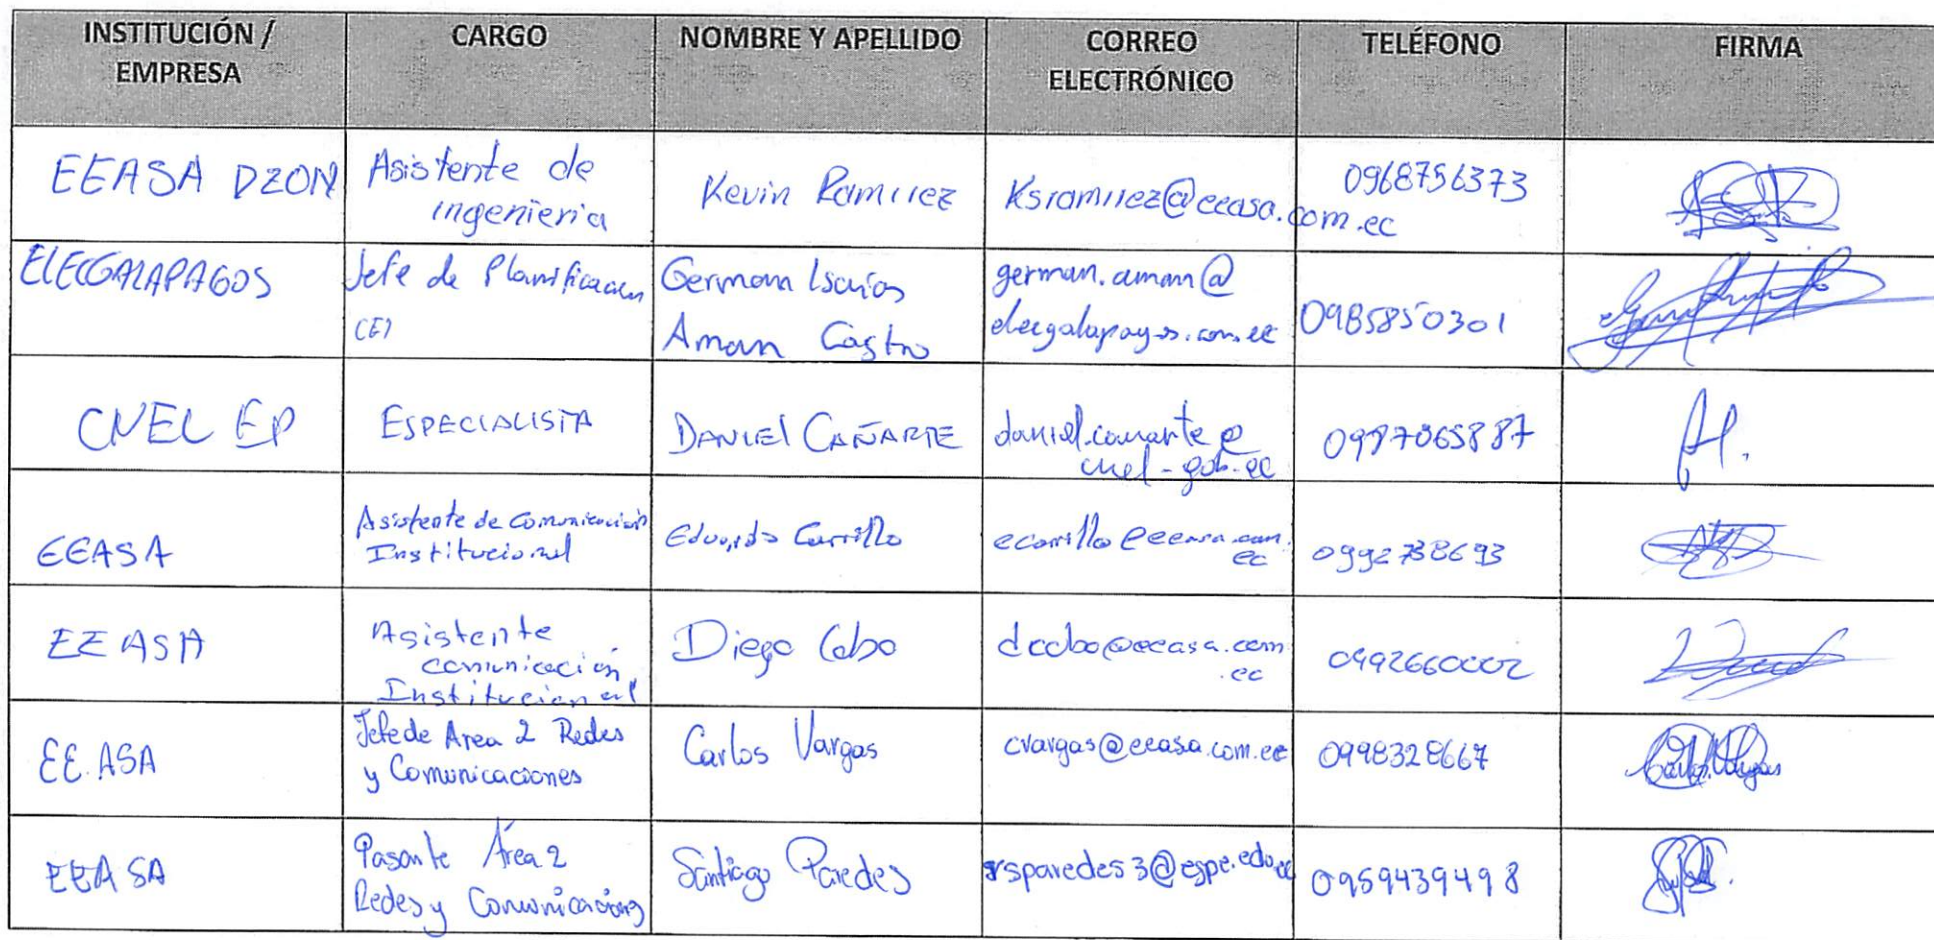 INSTITUCIÓN /
EMPRESA
CARGO
NOMBRE Y APELLIDO
CORREO
ELECTRÓNICO
TELÉFONO
FIRMA
EEASA DZON
Asistente de
ingenieria
Kevin Ramirez
Ksramirez@eeasa.com.ec
0968756373
ELECGALAPAGOS
Jefe de Planificacion
German Isaias
Aman Castro
german.aman@
elecgalapagos.com.ec
0985850301
CNEL EP
ESPECIALISTA
DANIEL CAÑARTE
daniel.canarte@
cnel-gob.ec
0987065887
EEASA
Asistente de Comunicación
Institucional
Eduardo Carrillo
ecarrillo@eeasa.com.
ec
0992738693
EEASA
Asistente
comunicación
Institucional
Diego Cobo
dcobo@eeasa.com
.ec
0992660002
EE.ASA
Jefe de Area 2 Redes
y Comunicaciones
Carlos Vargas
cvargas@eeasa.com.ec
0998328667
EEASA
Pasante Área 2
Redes y Comunicaciones
Santiago Paredes
rsparedes3@espe.edu.ec
0959439498